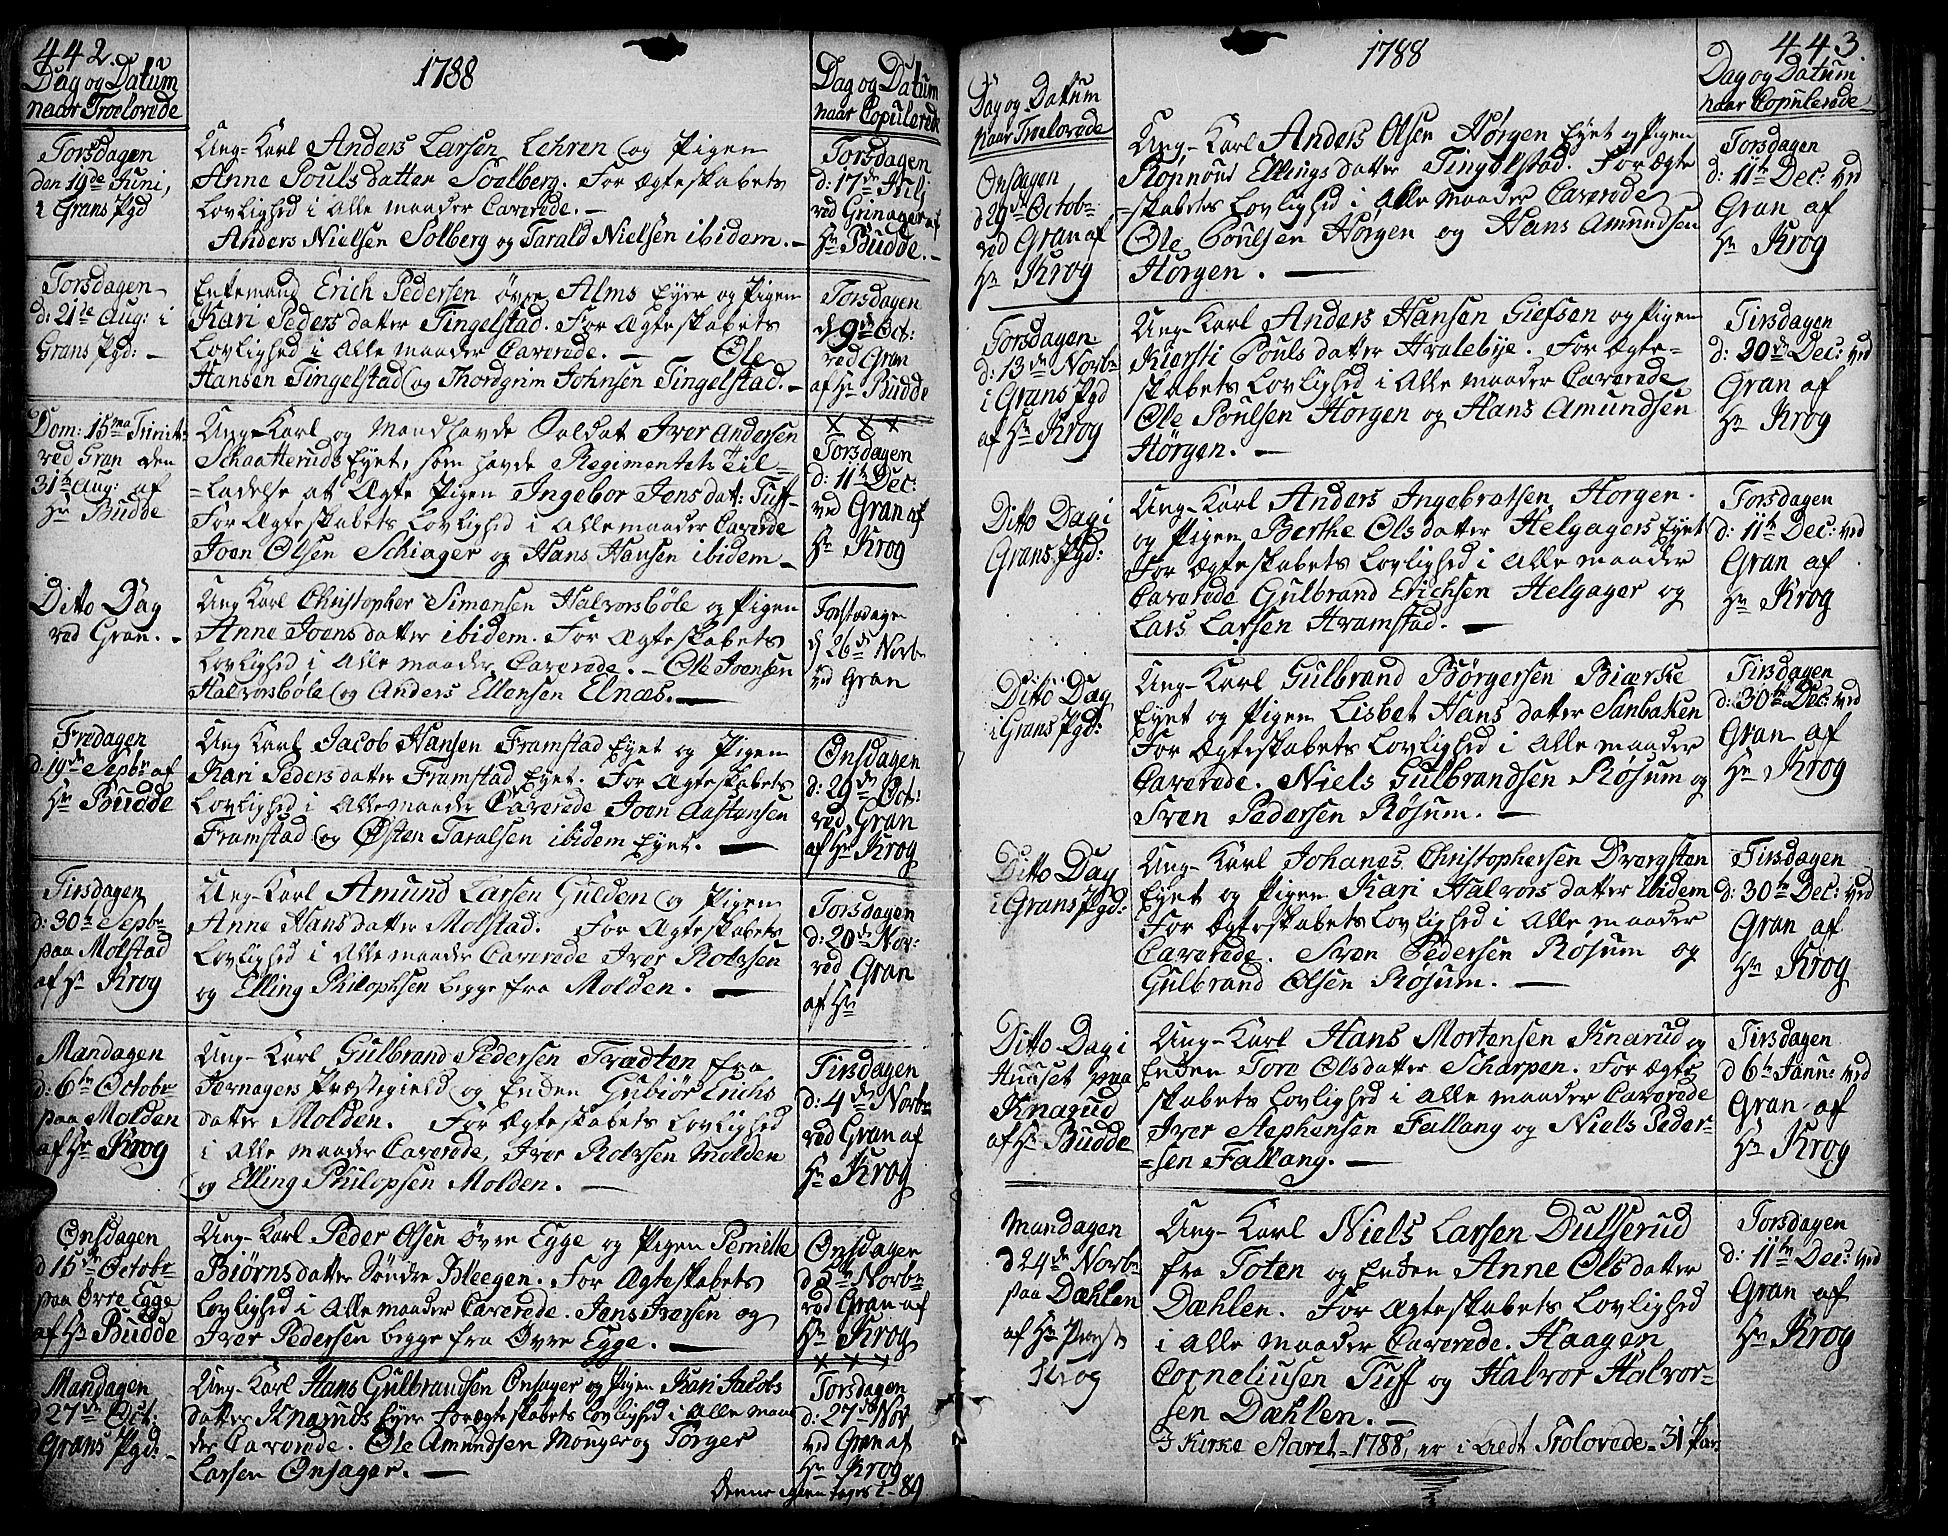 442.
1788
Dag og Datum
naar Troelovede
Dag og Datum
naar Copulerede
Torsdagen
den 19de Juni,
i Grans Pgd
Ung-Karl Anders Larsen Lehren og Pigen
Anne Poulsdatter Soelberg. For Ægteskabets
Lovlighed i Alle maader Caverede. -
Anders Nielsen Solberg og Tarald Nielsen ibidem. -
Torsdagen
d: 17de Julj
ved Grinager af
Hr Budde. -
Torsdagen
d: 21de Aug: i
Grans Pgd: -
Enkemand Erich Pedersen øvre Alms Eyer og Pigen
Kari Pedersdatter Tingelstad. For Ægteskabets
Lovlighed i Alle maader Caverede. - Ole
Hansen Tingelstad og Thordgrim Johnsen Tingelstad. -
Torsdagen
d 9de Oct:
ved Gran
af Hr Budde
Dom: 15ma Trinit:
ved Gran den
31te Aug: af
Hr Budde
Ung-Karl og Mandhavde Soldat Iver Andersen
Schaatteruds Eyet, som havde Regimentets Til-
=ladelse at Ægte Pigen Ingebor Jensdat: Tuff-
For Ægteskabets Lovlighed i Alle maader Caverede
Joen Olsen Schiager og Hans Hansen ibidem -
X X X
Torsdagen
d: 11te Dec:
ved Gran af
Hr Krog
Ditto Dag
ved Gran. -
Ung Karl Christopher Simensen Halvorsbøle og Pigen
Anne Joensdatter ibidem. For Ægteskabets
Lovlighed i Alle maader Caverede. - Ole Ivensen
Halvorsbøle og Anders Ellensen Elnæs. -
d 26de Novbr
ved Gran
Fredagen
d: 19de Sepbr af
Hr Budde
Ung Karl Jacob Hansen Framstad Eyet og Pigen
Kari Pedersdatter Framstad Eyet. For Ægteskabets
Lovlighed i Alle maader Caverede Joen Aastensen
Framstad og Østen Taralsen ibidem Eyet. -
Onsdagen
d: 29de Oct:
ved Gran
af Hr Krog
Tirsdagen
d: 30te Sepbr
paa Molstad
af Hr Krog
Ung-Karl Amund Larsen Gulden og Pigen
Anne Hansdatter Molstad. For Ægteskabets
Lovlighed i Alle maader Caverede Iver Rolvsen
og Elling Philophsen begge fra Molden. -
Torsdagen
d: 20de Nov:
ved Gran
af Hr
Mandagen
d: 6te Octobr
paa Molden
af Hr Krog
Ung-Karl Gulbrand Pedersen Trædten fra
Jævnagers Præstegield og Enken Gubiør Erichs
datter Molden. For Ægteskabets Lovlighed
i Alle maader Caverede, Iver Rolvsen Molden
og Elling Philopsen Molden. -
Tirsdagen
d: 4de Novbr
ved Gran af
Hr Krog
Onsdagen
d 15de Octobr
paa Øvre Egge
af Hr Budde
Ung-Karl Peder Olsen øvre Egge og Pigen Pernille
Biørnsdatter Søndre Bleegen. For Ægteskabets
Lovlighed i Alle maader Caverede. Jens Iversen og
Iver Pedersen begge fra Øvre Egge. -
Onsdagen
d 5te Novbr
ved Gran af
Hr Krog
Mandagen
d 27de Oct:
Grans Pgd: -
Ung-Karl Hans Gulbrandsen Onsager og Pigen Kari Jacobs
datter Knaruds Eyer for ægteskabets Lovlighed i Alle maa
der Caverede. Ole Amundsen Mouger og Torger
Larsen Onsager. -
X X X
Torsdagen
d: 27de Nov
ved Gran af
Hr Krog
Denne igien tages i - 89
443.
1788
Dag og Datum
naar Troelovede
Dag og Datum
naar Copulerede
Onsdagen
d 29de Octobr
ved Gran af
Hr Krog
Ung-Karl Anders Olsen Hørgen Eyet og Pigen
Rønnoug Ellingsdatter Tingelstad. For Ægte
=skabets Lovlighed i Alle maader Caverede
Ole Poulsen Hørgen og Hans Amundsen
Hørgen. -
Torsdagen
d: 11te Dec: ved
Gran af
Hr Krog
Torsdagen
d: 13de Novbr
i Grans Pgd
af Hr Krog
Ung-Karl Anders Hansen Giefsen og Pigen
Kiersti Poulsdatter Hvalebye. For Ægte-
skabets Lovlighed i Alle maader Caverede
Ole Poulsen Hørgen og Hans Amundsen
Hørgen. -
Tirsdagen
d: 30de Dec: ved
Gran af
Hr Krog
Ditto Dag i
Grans Pgd:
Ung-Karl Anders Ingebretsen Horgen.
og Pigen Berthe Olsdatter Helgagers Eyet
For Ægteskabets Lovlighed i Alle maader
Caverede Gulbrand Erichsen Helgager og
Lars Larsen Hramstad. -
Torsdagen
d: 11te Dec: ved
Gran af
Hr Krog
Ditto Dag
i Grans Pgd:
Ung-Karl Gulbrand Børgersen Biærke
Eyet og Pigen Lisbet Hansdatter Sanbaken
For Ægteskabets Lovlighed i Alle maader
Caverede. Niels Gulbrandsen Røsum og
Sven Pedersen Røsum. -
Tirsdagen
d: 30te Dec: ved
Gran af
Hr Krog
Ditto Dag
i Grans Pgd:
Ung-Karl Johanes Christophersen Dvergsten
Eyet og Pigen Kari Halvorsdatter ibidem
For Ægteskabets Lovlighed i Alle maader
Caverede. Sven Pedersen Røsum og
Gulbrand Olsen Røsum. -
Tirsdagen
d: 30te Dec: ved
Gran af
Hr Krog
Ditto Dag i
Huuset paa
Knarud
af Hr Budde
Ung-Karl Hans Mortensen Knarud og
Enken Tore Olsdatter Scharpen. For Ægte
skabets Lovlighed i Alle maader Caverede
Iver Stephensen Fallang og Niels Peder-
=sen Fallang. -
Tirsdagen
d 6te Janr: ved
Gran af
Hr Krog
Mandagen
d 24de Novbr
paa Dæhlen
af Hr Provst
Krog
Ung-Karl Niels Larsen Dulserud
fra Toten og Enken Anne Olsdatter
Dæhlen. For Ægteskabets Lovlighed
i Alle maader Caverede. Haagen
Corneliusen Tuff og Halvor Halvor-
sen Dæhlen. -
Torsdagen
d: 11te Dec: ved
Gran af
Hr Krog
I Kirke Aaret - 1788, er i Aldt Trolovede - 31 Par